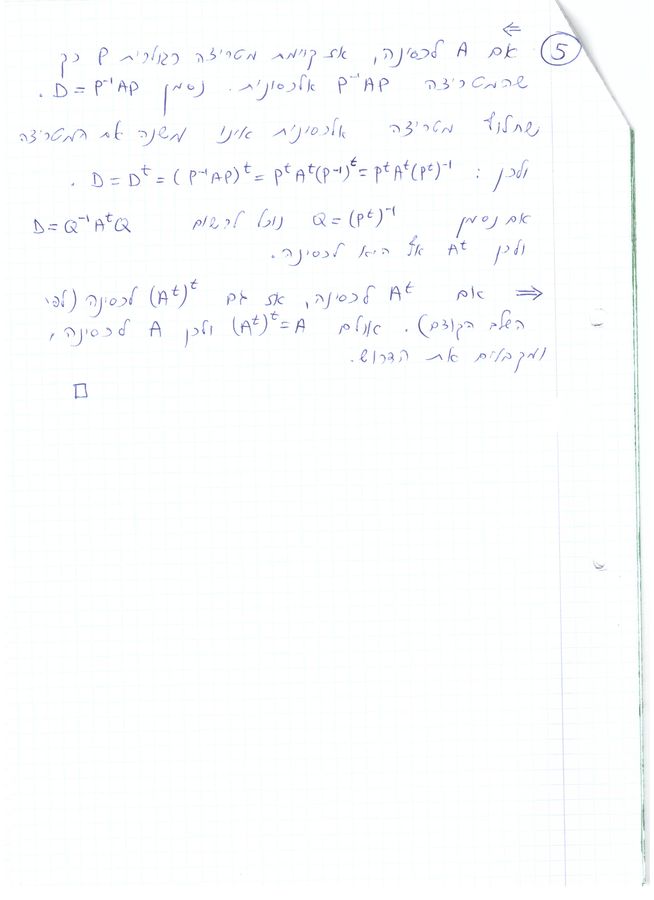 ⑤ ⇐
אם A לכסינה, אז קיימת מטריצה רגולרית P כך
שהמטריצה P⁻¹AP אלכסונית. נסמן D = P⁻¹AP.
שחלוף מטריצה אלכסונית אינו משנה את המטריצה
ולכן: D = Dᵗ = (P⁻¹AP)ᵗ = PᵗAᵗ(P⁻¹)ᵗ = PᵗAᵗ(Pᵗ)⁻¹.
אם נסמן Q = (Pᵗ)⁻¹ נוכל לרשום D = Q⁻¹AᵗQ
ולכן Aᵗ אף היא לכסינה.
⇒ אם Aᵗ לכסינה, אז גם (Aᵗ)ᵗ לכסינה (לפי
השלב הקודם). אולם (Aᵗ)ᵗ = A ולכן A לכסינה,
ומקבלים את הדרוש.
□